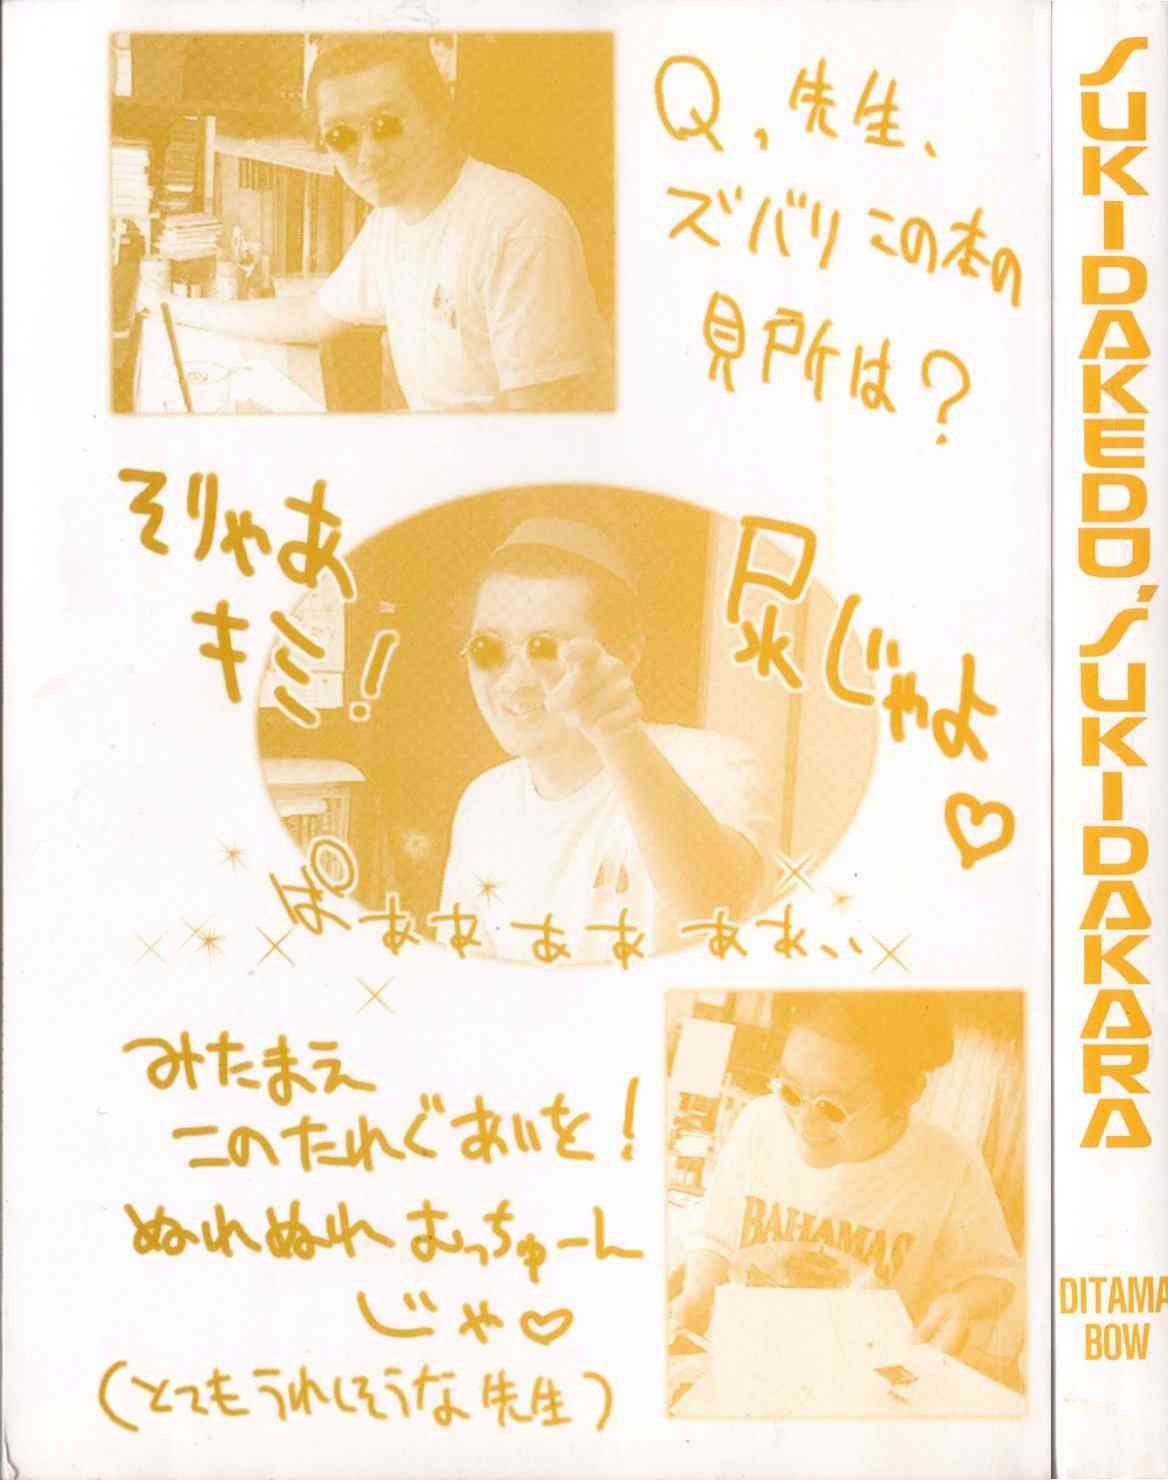 Q,先生、
ズバリこの本の
見所は?
そりゃあ
キミ!
尿じゃよ♡
ぱぁぁぁぁぁぁ..
みたまえ
このたれぐあいを!
ぬれぬれむっちゅーん
じゃ♡
(とてもうれしそうな先生)
BAHAMAS
SUKIDAKEDO,SUKIDAKARA
DITAMA
BOW